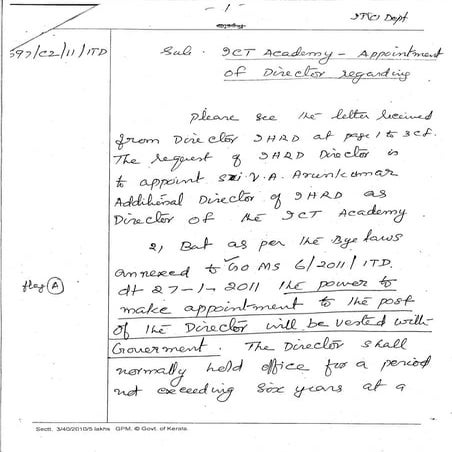 - 1 -
IT(C) Dept
597/C2/11/ITD
Sub. ICT Academy - Appointment
of Director regarding
Please see the letter received
from Director IHRD at page 1 to 3 cf.
The request of IHRD Director is
to appoint Sri. V. A. Arunkumar
Additional Director of IHRD as
Director of the ICT Academy
2) But as per the Bye laws
annexed to GO MS 6/2011/ITD.
flag (A)
dt 27-1-2011 the power to
make appointment to the post
of the Director will be vested with
Goverment. The Director shall
normally held office for a period
not exceeding six years at a
Sectt. 3/40/2010/5 lakhs GPM. © Govt. of Kerala.